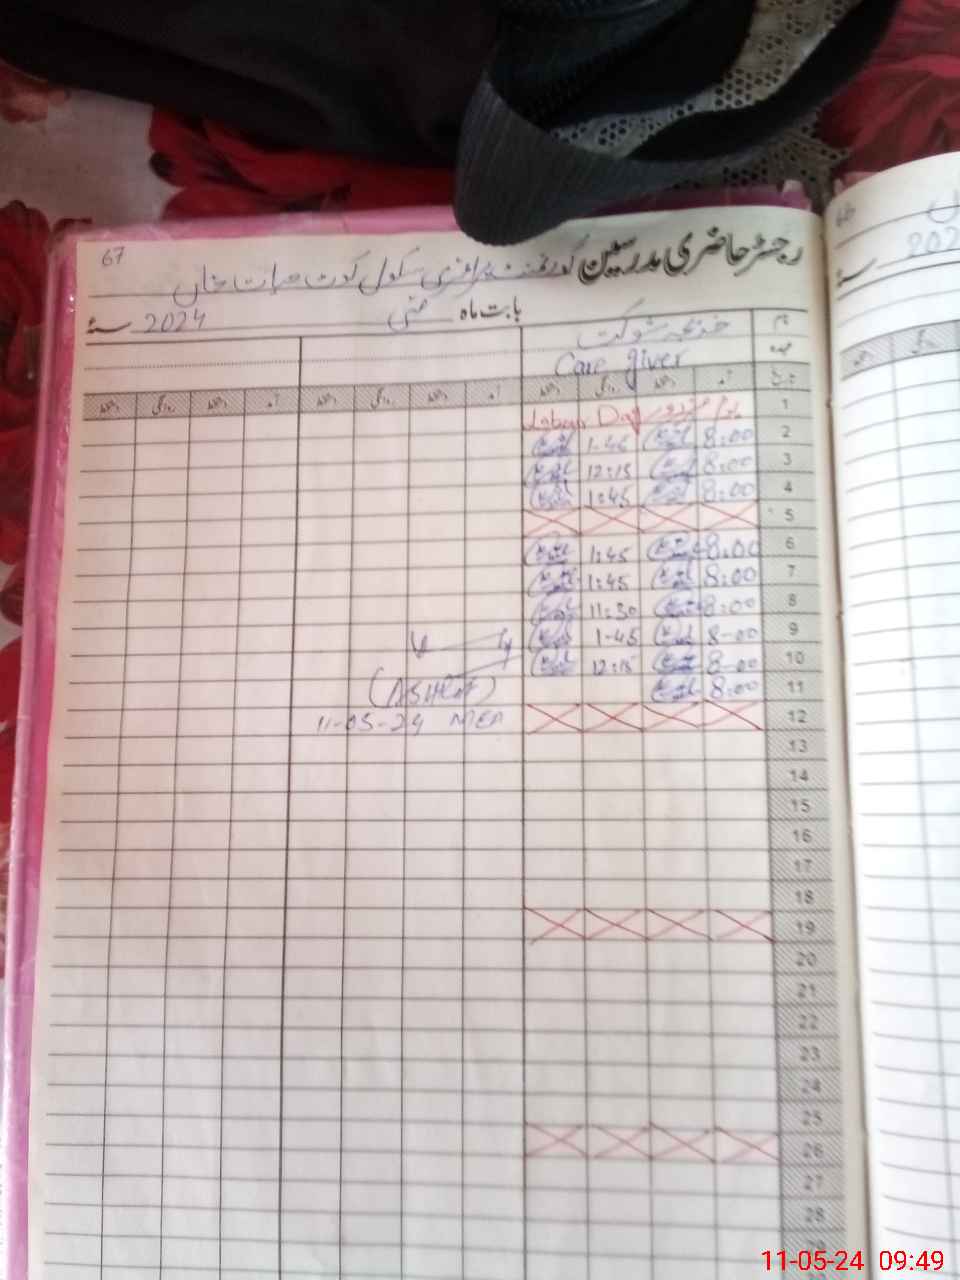 67
رجسٹر حاضری مدرسین گورنمنٹ پرائمری سکول کوٹ حیات خاں
بابت ماہ مئی 2024 سنہ
نام خدیجہ شوکت
عہدہ Care giver
تاریخ آمد دستخط روانگی دستخط آمد دستخط روانگی دستخط آمد دستخط روانگی دستخط
1 یوم مزدور Labour Day
2 8:00 1-45
3 8:00 12:15
4 8:00 1:45
5
6 8:00 1:45
7 8:00 1:45
8 8:00 11:30
9 8-00 1-45
10 8-00 12:15
11 8:00
(ASHRAF)
12
11-05-24 MEA
13
14
15
16
17
18
19
20
21
22
23
24
25
26
27
28
29
202
11-05-24 09:49